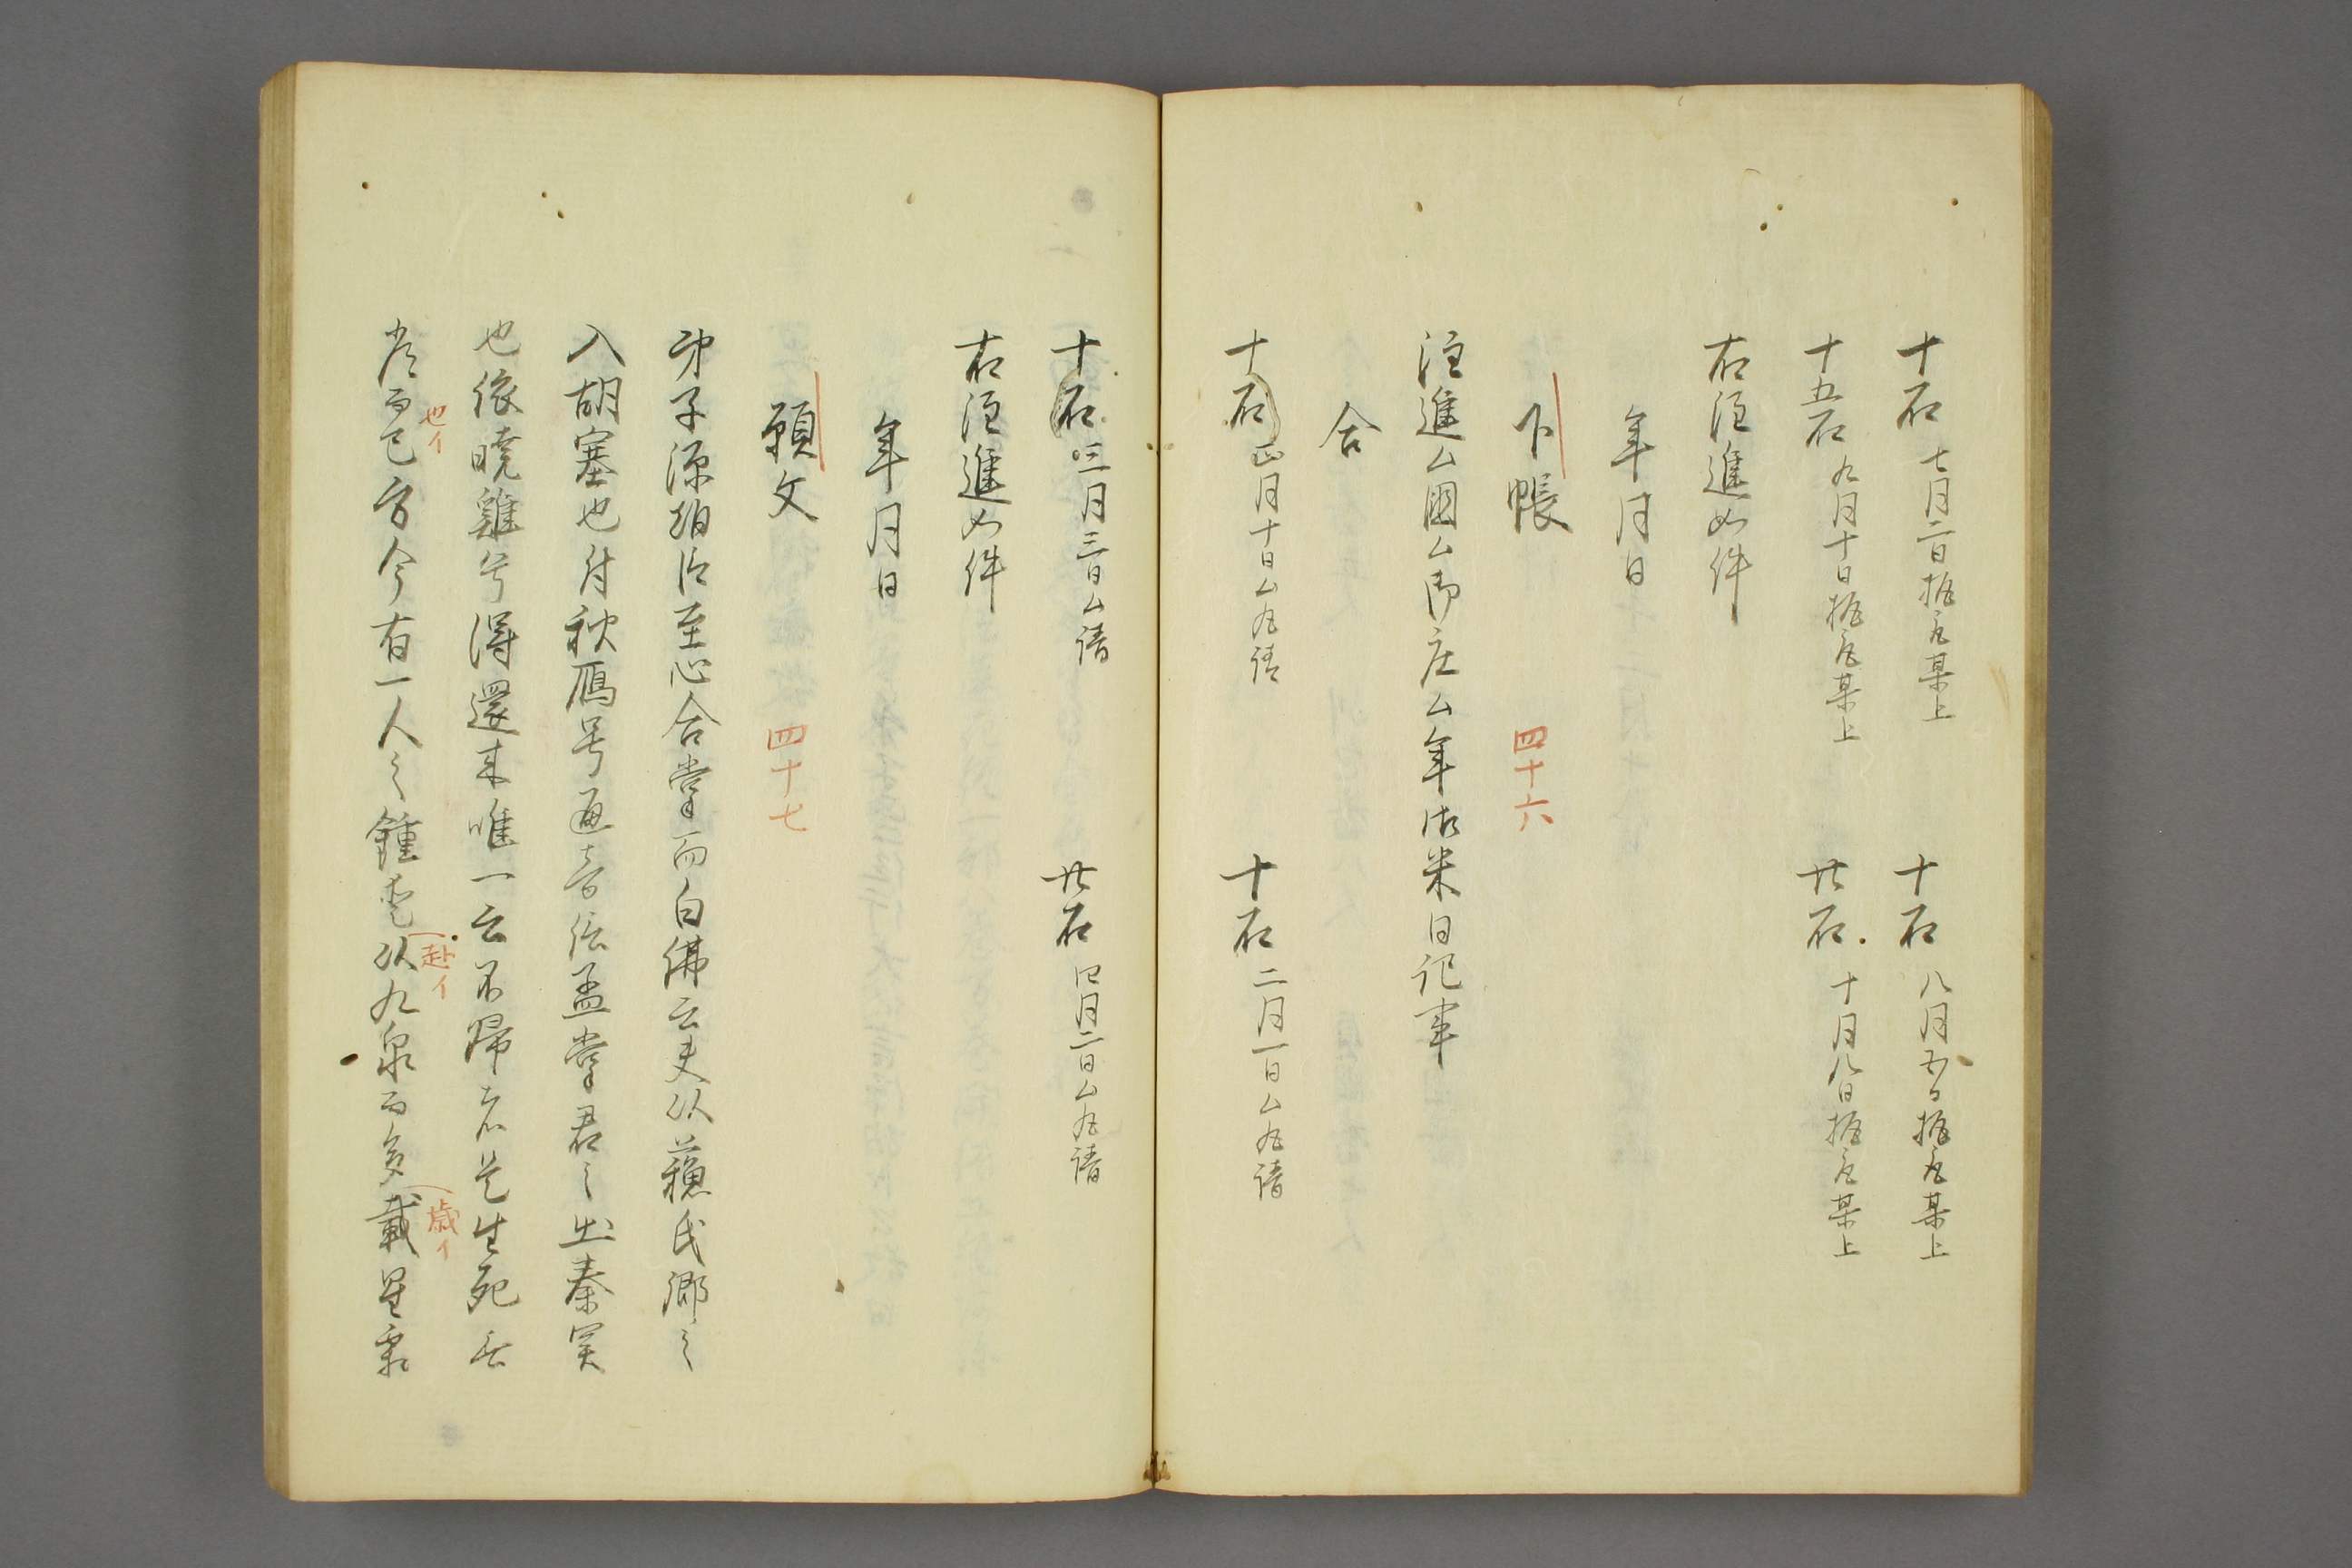 十石 七月二日梶取某上 十石 八月五日梶取某上
十五石 九月十日梶取某上 廿石 十月八日梶取某上
右注進如件
年月日
下帳 四十六
注進ム国ム御庄ム年御米日記事
合
十石 正月十日ム丸請 十石 二月一日ム丸請
十石 三月三日ム請 廿石 四月二日ム丸請
右注進如件
年月日
願文 四十七
弟子源 至心合掌而白佛言夫以蘓氏郷之
入胡塞也付秋鴈兮通音信孟掌君之出秦
也依暁雞兮得還来唯一去不帰者是生死
而已方今有一人之鍾 以九泉而多載星霜
也イ
赴イ
歳イ